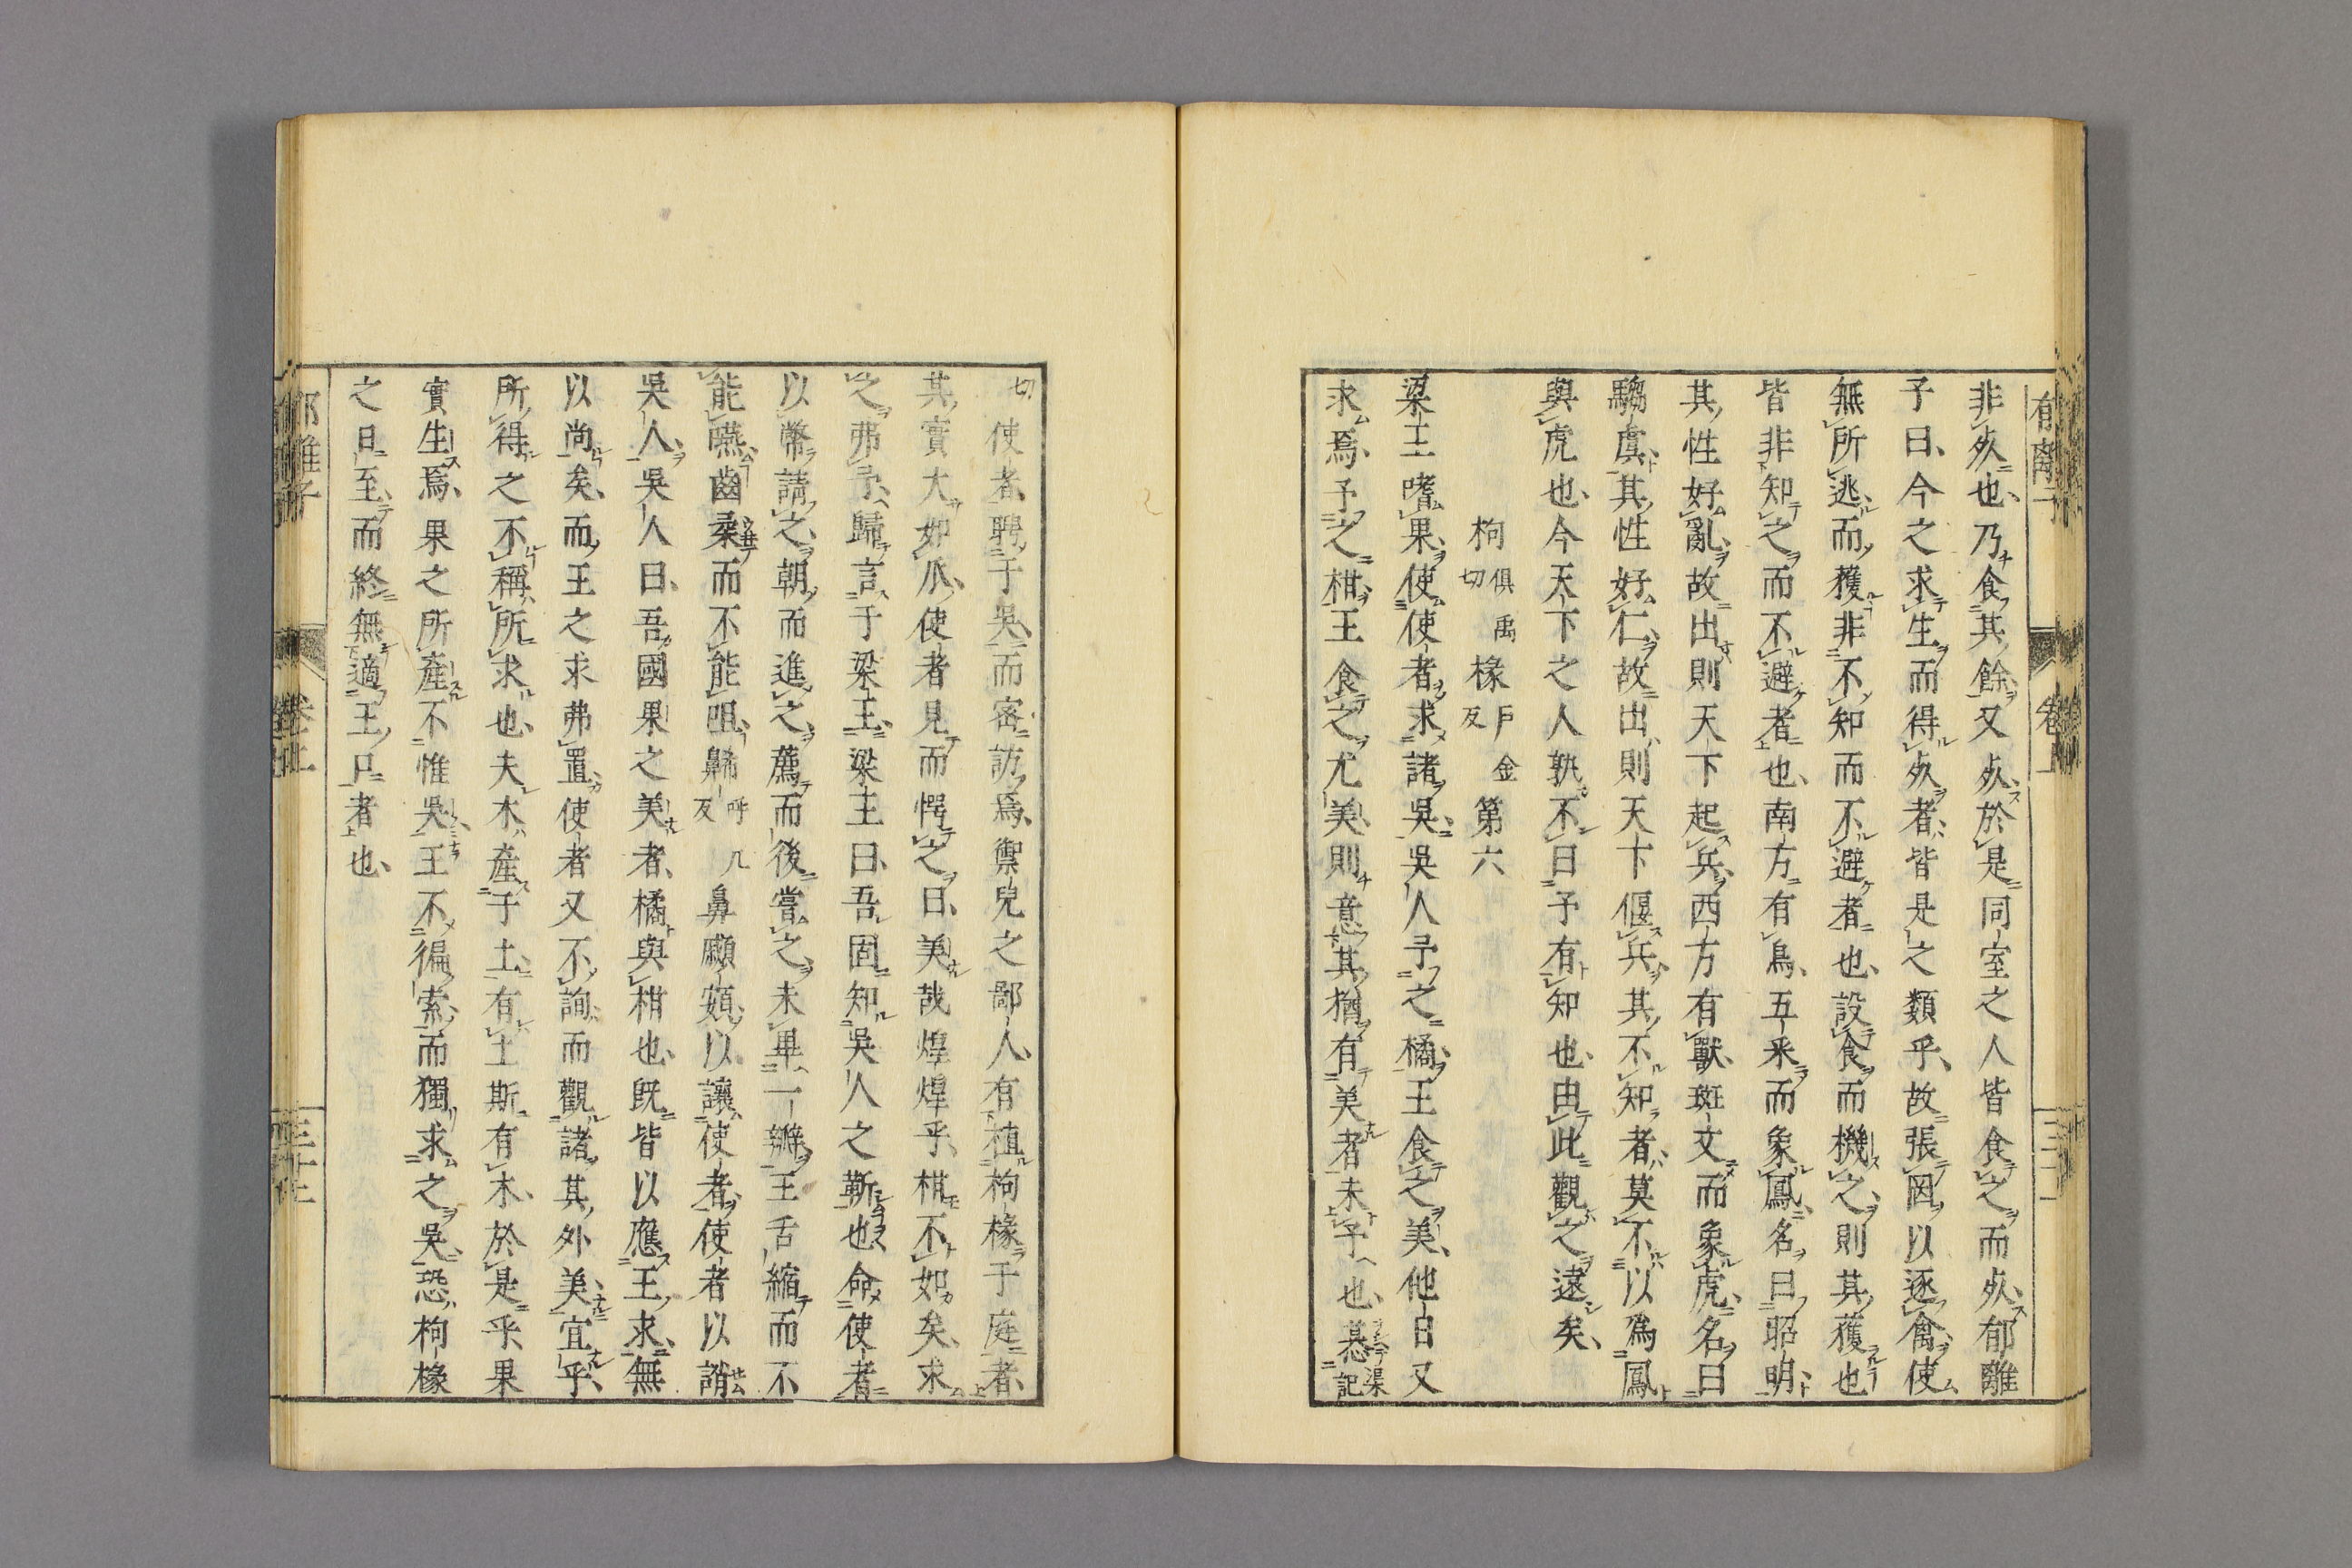 非死也乃食其餘又死於是同室之人皆食之而死郁離
子曰今之求生而得死者皆是之類乎故張罔以逐禽使
無所逃而獲非不知而不避者也設食而機之則其獲也
皆非知之而不避者也南方有鳥五采而象鳳名曰昭明
其性好亂故出則天下起兵西方有獸斑文而象虎名曰
騶虞其性好仁故出則天下偃兵其不知者莫不以為鳳
與虎也今天下之人孰不曰予有知也由此觀之遠矣
枸俱禹切櫞戶金反第六
梁王嗜果使使者求諸吳吳人予之橘王食之美他日又
求焉予之柑王食之尤美則意其猶有美者未予也惎渠記
切使者聘于吳而密訪焉禦兒之鄙人有植枸櫞于庭者
其實大如瓜使者見而愕之曰美哉煌煌乎柑不如矣求
之弗予歸言于梁王梁王曰吾固知吳人之靳也命使者
以幣請之朝而進之薦而後嘗之未畢一瓣王舌縮而不
能嚥齒柔而不能咀鼻希呼几反鼻顣頞以讓使者使者以誚
吳人吳人曰吾國果之美者橘與柑也既皆以應王求無
以尚矣而王之求弗置使者又不詢而觀諸其外美宜乎
所得之不稱所求也夫木產于土有土斯有木於是乎果
實生焉果之所產不惟吳王不徧索而獨求之吳恐枸櫞
之日至而終無適王口者也
郁離子 卷上